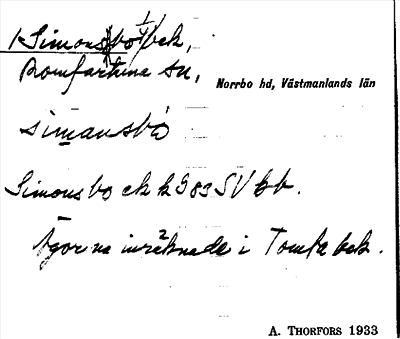 Simonsbo 1/4 bek,
Romfartuna sn,
Norrbo hd, Västmanlands län
simansbo
Simonsbo ek k G83 SV bb.
Ägorna inräknade i Tomta bek.
A. THORFORS 1933